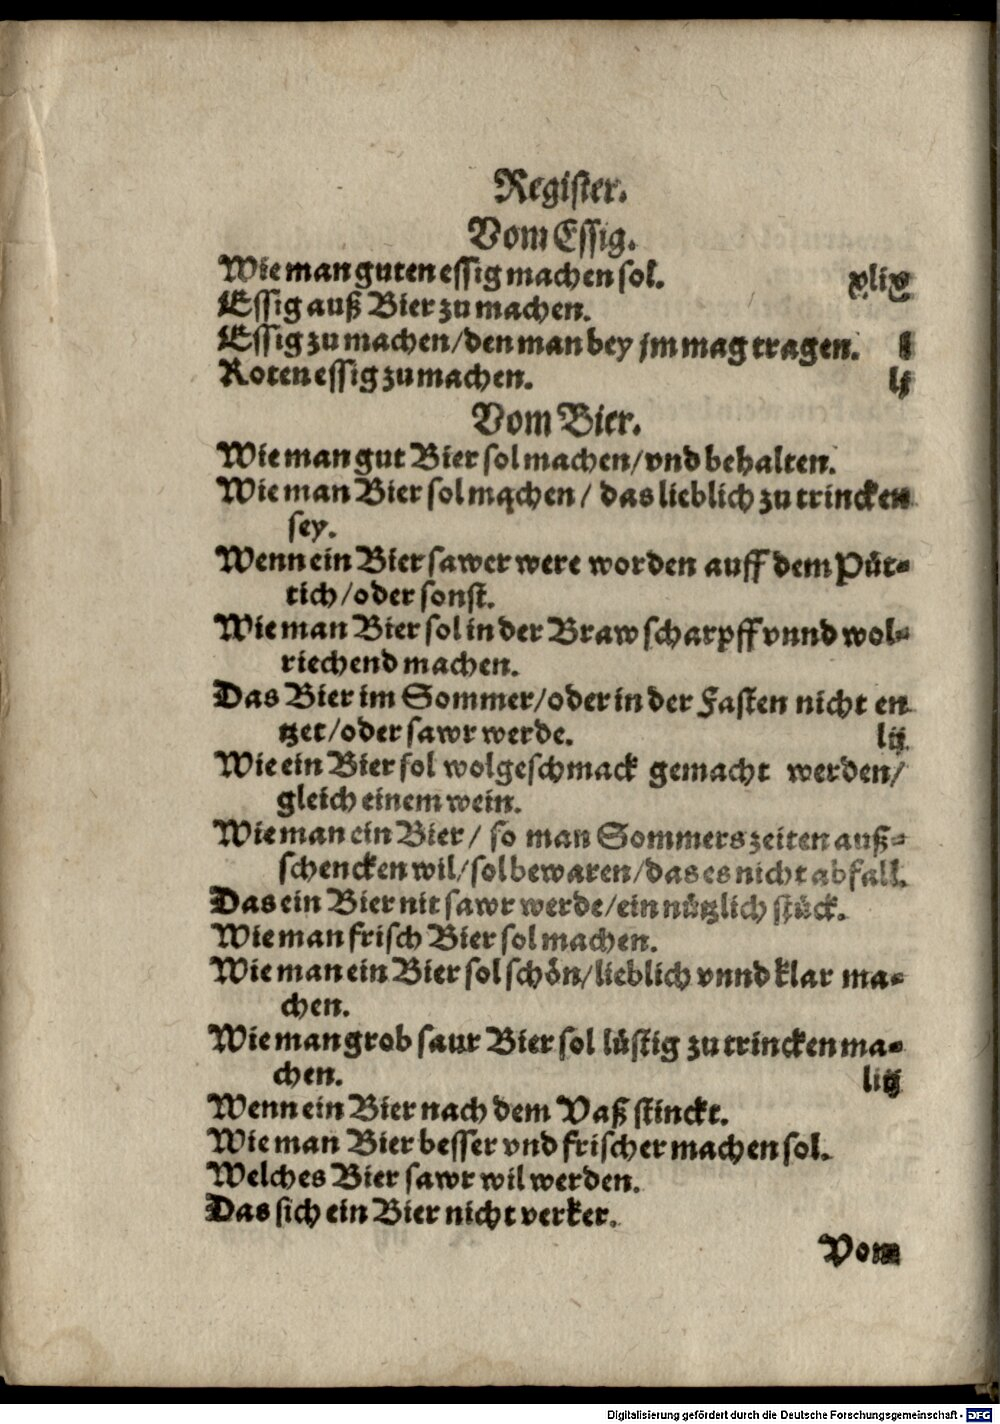 Register.
Vom Essig.
Wie man guten essig machen sol. xlix
Essig auß Bier zu machen.
Essig zu machen/den man bey jm mag tragen. l
Roten essig zu machen. lj
Vom Bier.
Wie man gut Bier sol machen/vnd behalten.
Wie man Bier sol machen/ das lieblich zu trincken
sey.
Wenn ein Bier sawer were worden auff dem Püt-
tich/oder sonst.
Wie man Bier sol in der Braw scharpff vnnd wol-
riechend machen.
Das Bier im Sommer/oder in der Fasten nicht en
tzet/oder sawr werde. lij
Wie ein Bier sol wolgeschmack gemacht werden/
gleich einem wein.
Wie man ein Bier/ so man Sommers zeiten auß-
schencken wil/sol bewaren/das es nicht abfall.
Das ein Bier nit sawr werde/ein nützlich stück.
Wie man frisch Bier sol machen.
Wie man ein Bier sol schön/lieblich vnnd klar ma-
chen.
Wie man grob saur Bier sol lüstig zu trincken ma-
chen. liij
Wenn ein Bier nach dem Vaß stinckt.
Wie man Bier besser vnd frischer machen sol.
Welches Bier sawr wil werden.
Das sich ein Bier nicht verker.
Vom
Digitalisierung gefördert durch die Deutsche Forschungsgemeinschaft - DFG